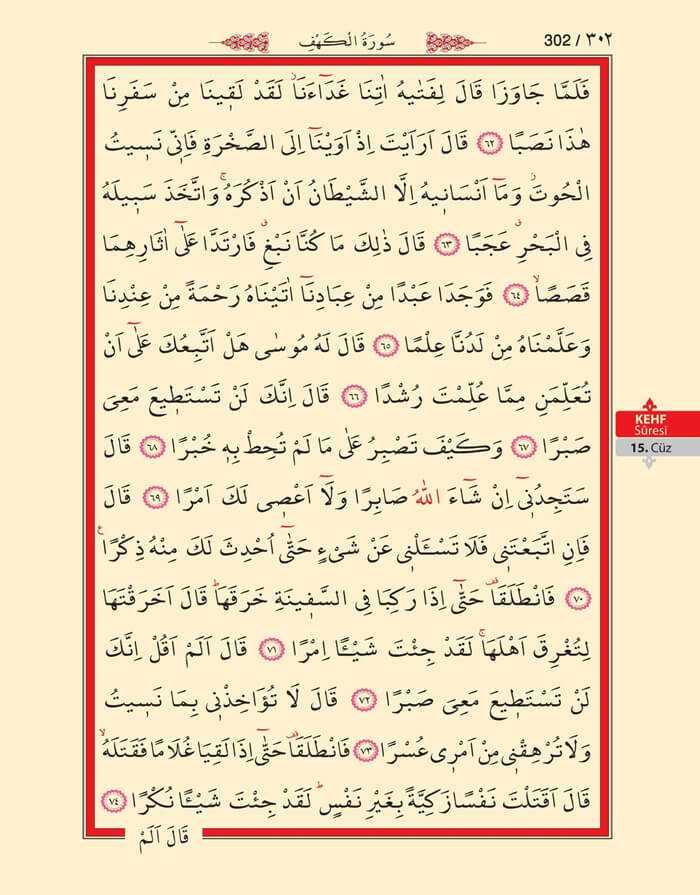 سُورَةُ الْكَهْفِ
302 / ٣٠٢
فَلَمَّا جَاوَزَا قَالَ لِفَتٰيهُ اٰتِنَا غَدَٓاءَنَاۘ لَقَدْ لَقٖينَا مِنْ سَفَرِنَا
هٰذَا نَصَبًا ﴿٦٢﴾ قَالَ اَرَاَيْتَ اِذْ اَوَيْنَٓا اِلَى الصَّخْرَةِ فَاِنّٖي نَسٖيتُ
الْحُوتَۘ وَمَٓا اَنْسَانٖيهُ اِلَّا الشَّيْطَانُ اَنْ اَذْكُرَهُۚ وَاتَّخَذَ سَبٖيلَهُ
فِي الْبَحْرِۗ عَجَبًا ﴿٦٣﴾ قَالَ ذٰلِكَ مَا كُنَّا نَبْغِۗ فَارْتَدَّا عَلٰٓى اٰثَارِهِمَا
قَصَصًاۙ ﴿٦٤﴾ فَوَجَدَا عَبْدًا مِنْ عِبَادِنَٓا اٰتَيْنَاهُ رَحْمَةً مِنْ عِنْدِنَا
وَعَلَّمْنَاهُ مِنْ لَدُنَّا عِلْمًا ﴿٦٥﴾ قَالَ لَهُ مُوسٰى هَلْ اَتَّبِعُكَ عَلٰٓى اَنْ
تُعَلِّمَنِ مِمَّا عُلِّمْتَ رُشْدًا ﴿٦٦﴾ قَالَ اِنَّكَ لَنْ تَسْتَطٖيعَ مَعِيَ
صَبْرًا ﴿٦٧﴾ وَكَيْفَ تَصْبِرُ عَلٰى مَا لَمْ تُحِطْ بِهٖ خُبْرًا ﴿٦٨﴾ قَالَ
سَتَجِدُنٖٓي اِنْ شَٓاءَ اللّٰهُ صَابِرًا وَلَٓا اَعْصٖي لَكَ اَمْرًا ﴿٦٩﴾ قَالَ
فَاِنِ اتَّبَعْتَنٖي فَلَا تَسْـَٔلْنٖي عَنْ شَيْءٍ حَتّٰٓى اُحْدِثَ لَكَ مِنْهُ ذِكْرًاࣖ
﴿٧٠﴾ فَانْطَلَقَا۠ حَتّٰٓى اِذَا رَكِبَا فِي السَّفٖينَةِ خَرَقَهَاۜ قَالَ اَخَرَقْتَهَا
لِتُغْرِقَ اَهْلَهَاۚ لَقَدْ جِئْتَ شَيْـًٔا اِمْرًا ﴿٧١﴾ قَالَ اَلَمْ اَقُلْ اِنَّكَ
لَنْ تَسْتَطٖيعَ مَعِيَ صَبْرًا ﴿٧٢﴾ قَالَ لَا تُؤَاخِذْنٖي بِمَا نَسٖيتُ
وَلَا تُرْهِقْنٖي مِنْ اَمْرٖي عُسْرًا ﴿٧٣﴾ فَانْطَلَقَا۠ حَتّٰٓى اِذَا لَقِيَا غُلَامًا فَقَتَلَهُۙ
قَالَ اَقَتَلْتَ نَفْسًا زَكِيَّةً بِغَيْرِ نَفْسٍۜ لَقَدْ جِئْتَ شَيْـًٔا نُكْرًا ﴿٧٤﴾
قَالَ اَلَمْ
KEHF
Sûresi
15. Cüz